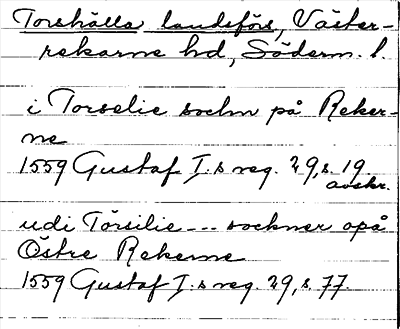 Torshälla landsförs, Väster-
rekarne hd, Söderm. l.
i Torselie sochn på Reker-
ne
1559 Gustaf I.s reg. 29, s. 19
avskr.
udi Törsilie --- sockner opå
Östre Rekerne
1559 Gustaf I.s reg. 29, s. 77